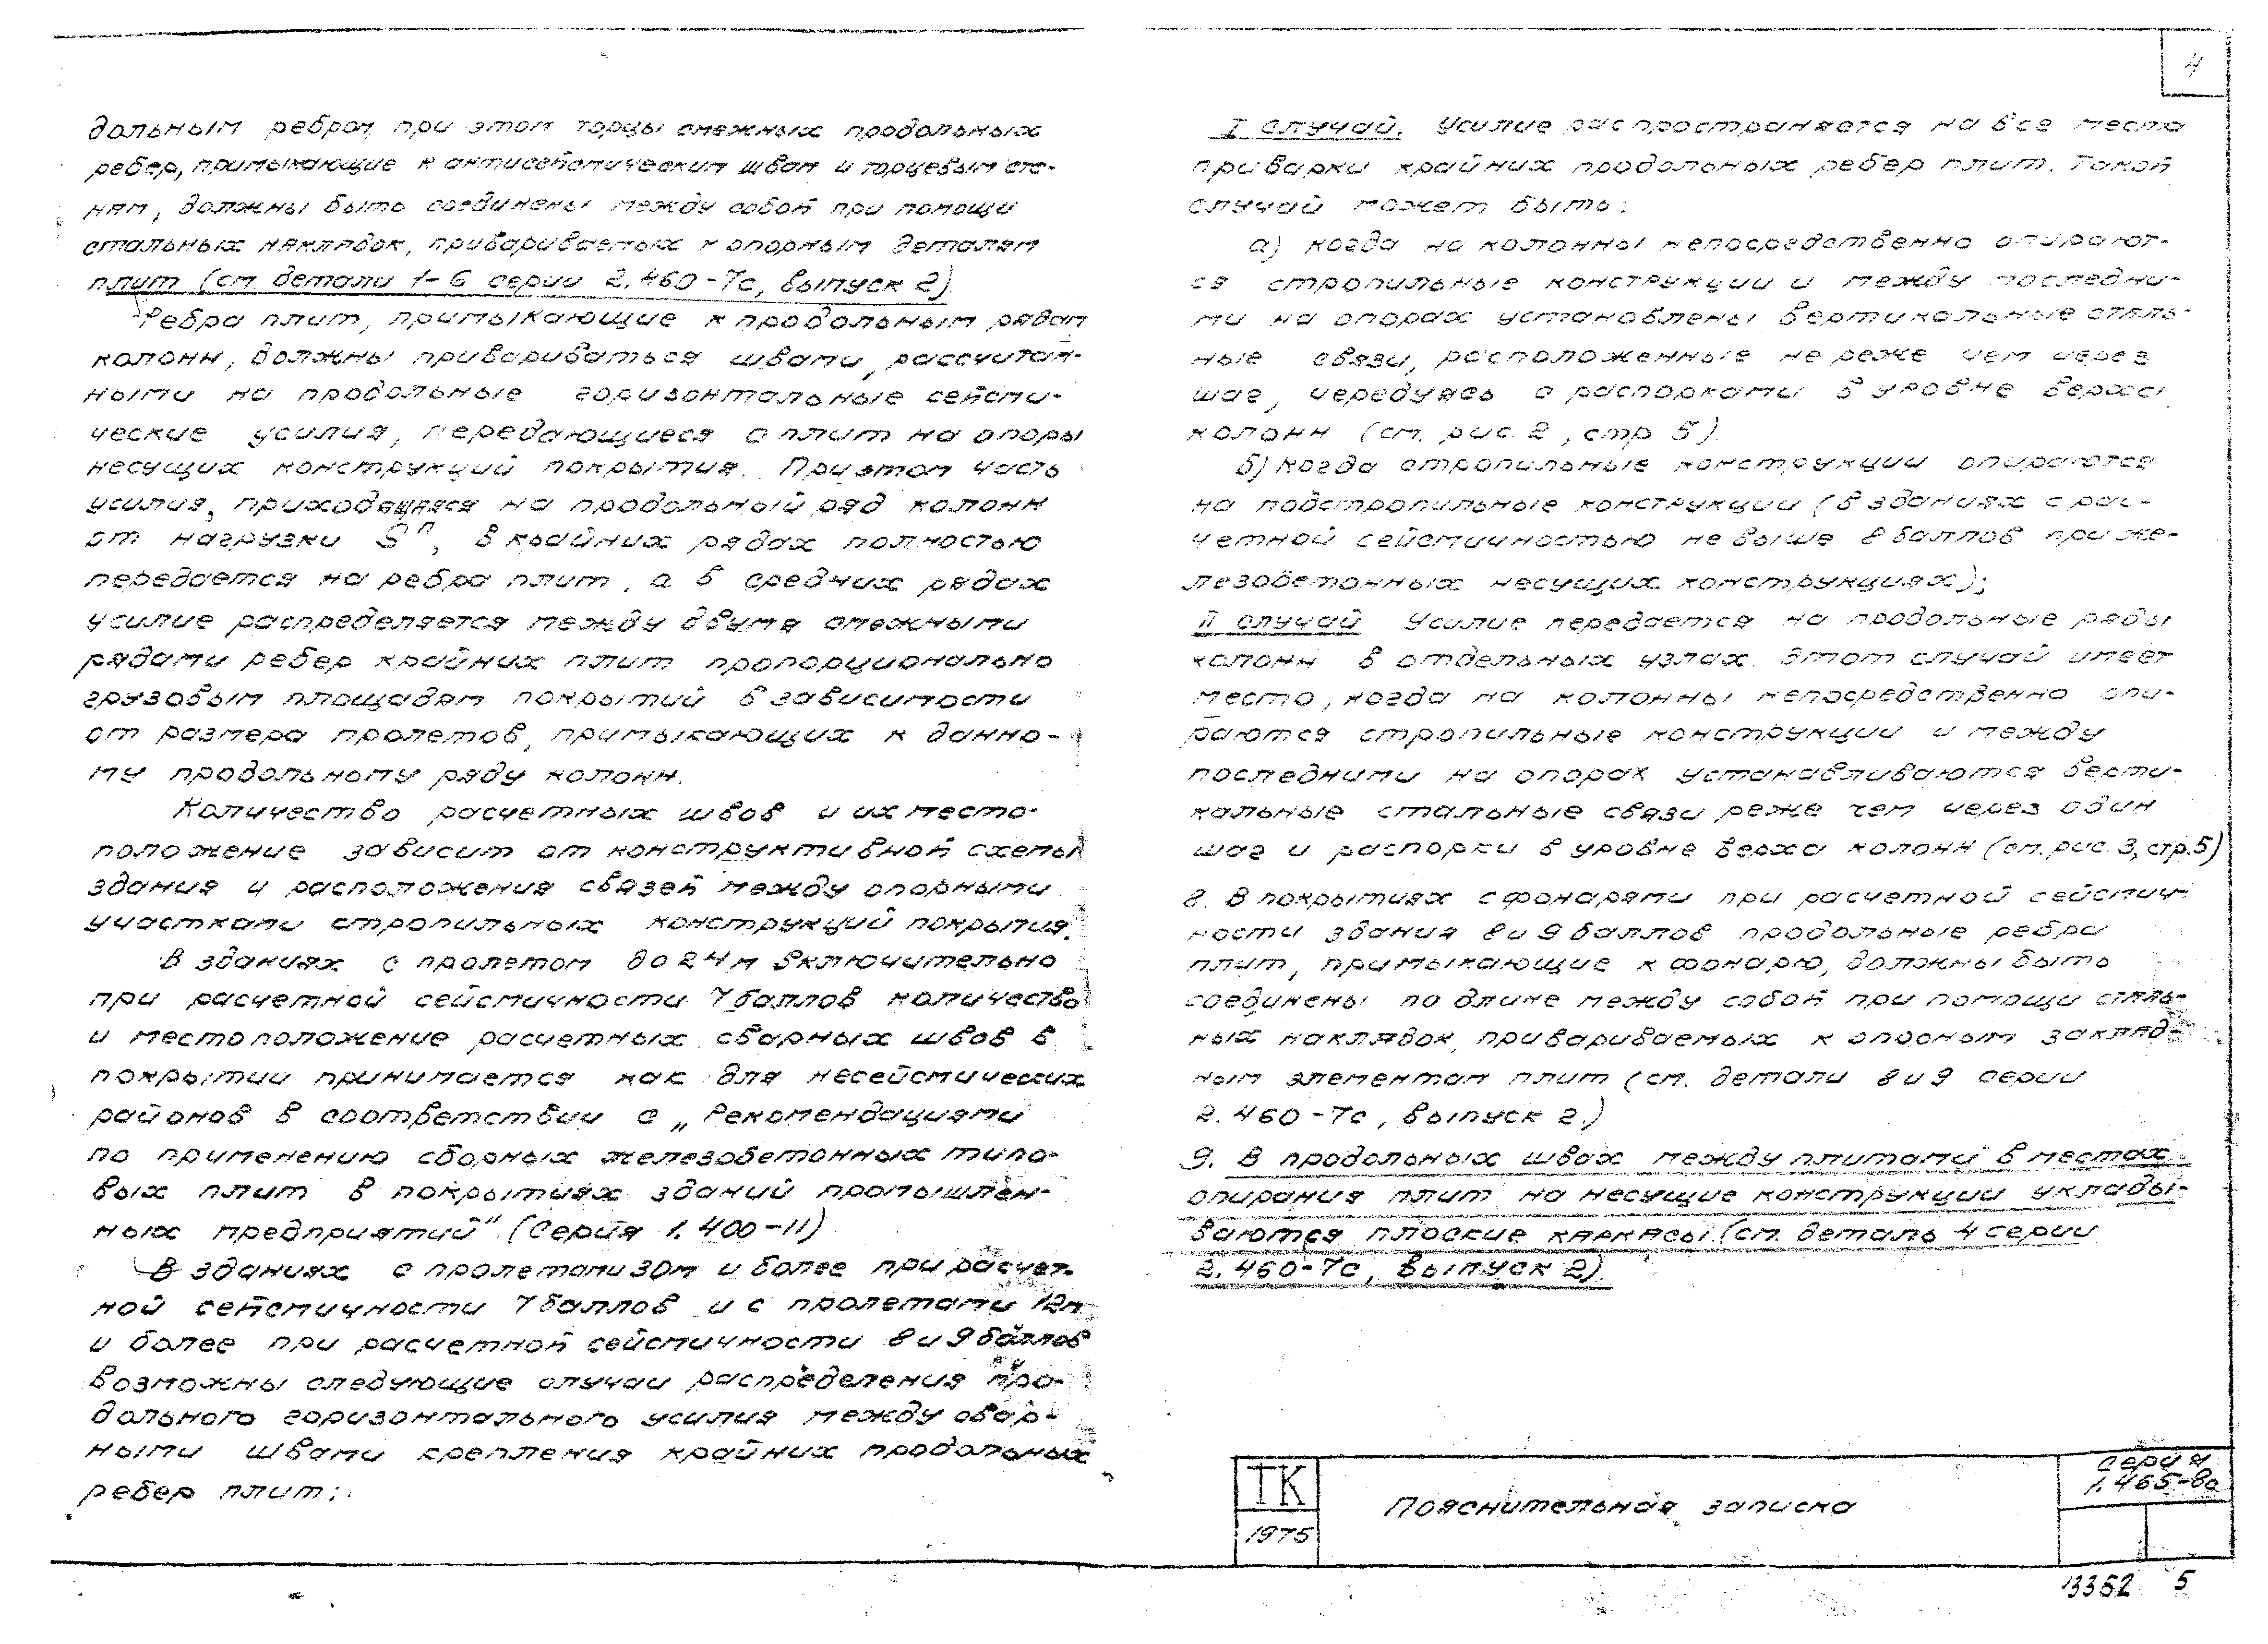 4
дольным ребрам при этом торцы смежных продольных
ребер, примыкающие к антисейсмическим швам и торцевым сте-
нам, должны быть соединены между собой при помощи
стальных накладок, привариваемых к опорным деталям
плит (см. детали 1-6 серии 2.460-7с, выпуск 2).
Ребра плит, примыкающие к продольным рядам
колонн, должны привариваться швами, рассчитан-
ными на продольные горизонтальные сейсми-
ческие усилия, передающиеся с плит на опоры
несущих конструкций покрытия. При этом часть
усилия, приходящаяся на продольный ряд колонн
от нагрузки Sⁿ, в крайних рядах полностью
передается на ребра плит, а в средних рядах
усилие распределяется между двумя смежными
рядами ребер крайних плит пропорционально
грузовым площадям покрытий в зависимости
от размера пролетов, примыкающих к данно-
му продольному ряду колонн.
Количество расчетных швов и их место-
положение зависит от конструктивной схемы
здания и расположения связей между опорными
участками стропильных конструкций покрытия.
В зданиях с пролетом до 24м включительно
при расчетной сейсмичности 7 баллов количество
и местоположение расчетных сварных швов в
покрытии принимается как для несейсмических
районов в соответствии с „Рекомендациями
по применению сборных железобетонных типо-
вых плит в покрытиях зданий промышлен-
ных предприятий" (Серия 1.400-11)
В зданиях с пролетами 30м и более при расчет-
ной сейсмичности 7 баллов и с пролетами 12м
и более при расчетной сейсмичности 8 и 9 баллов
возможны следующие случаи распределения про-
дольного горизонтального усилия между свар-
ными швами крепления крайних продольных
ребер плит:
I случай. Усилие распространяется на все места
приварки крайних продольных ребер плит. Такой
случай может быть:
а) когда на колонны непосредственно опирают-
ся стропильные конструкции и между последни-
ми на опорах установлены вертикальные сталь-
ные связи, расположенные не реже чем через
шаг, чередуясь с распорками в уровне верха
колонн (см. рис. 2, стр. 5)
б) когда стропильные конструкции опираются
на подстропильные конструкции (в зданиях с рас-
четной сейсмичностью не выше 8 баллов при же-
лезобетонных несущих конструкциях);
II случай Усилие передается на продольные ряды
колонн в отдельных узлах. Этот случай имеет
место, когда на колонны непосредственно опи-
раются стропильные конструкции и между
последними на опорах устанавливаются верти-
кальные стальные связи реже чем через один
шаг и распорки в уровне верха колонн (см. рис. 3, стр. 5)
8. В покрытиях с фонарями при расчетной сейсмич-
ности здания 8 и 9 баллов продольные ребра
плит, примыкающие к фонарю, должны быть
соединены по длине между собой при помощи сталь-
ных накладок, привариваемых к опорным заклад-
ным элементам плит (см. детали 8 и 9 серии
2.460-7с, выпуск 2.)
9. В продольных швах между плитами в местах
опирания плит на несущие конструкции уклады-
ваются плоские каркасы (см. деталь 4 серии
2.460-7с, выпуск 2).
ТК
1975
Пояснительная записка
Серия
1.465-8с
13352 5